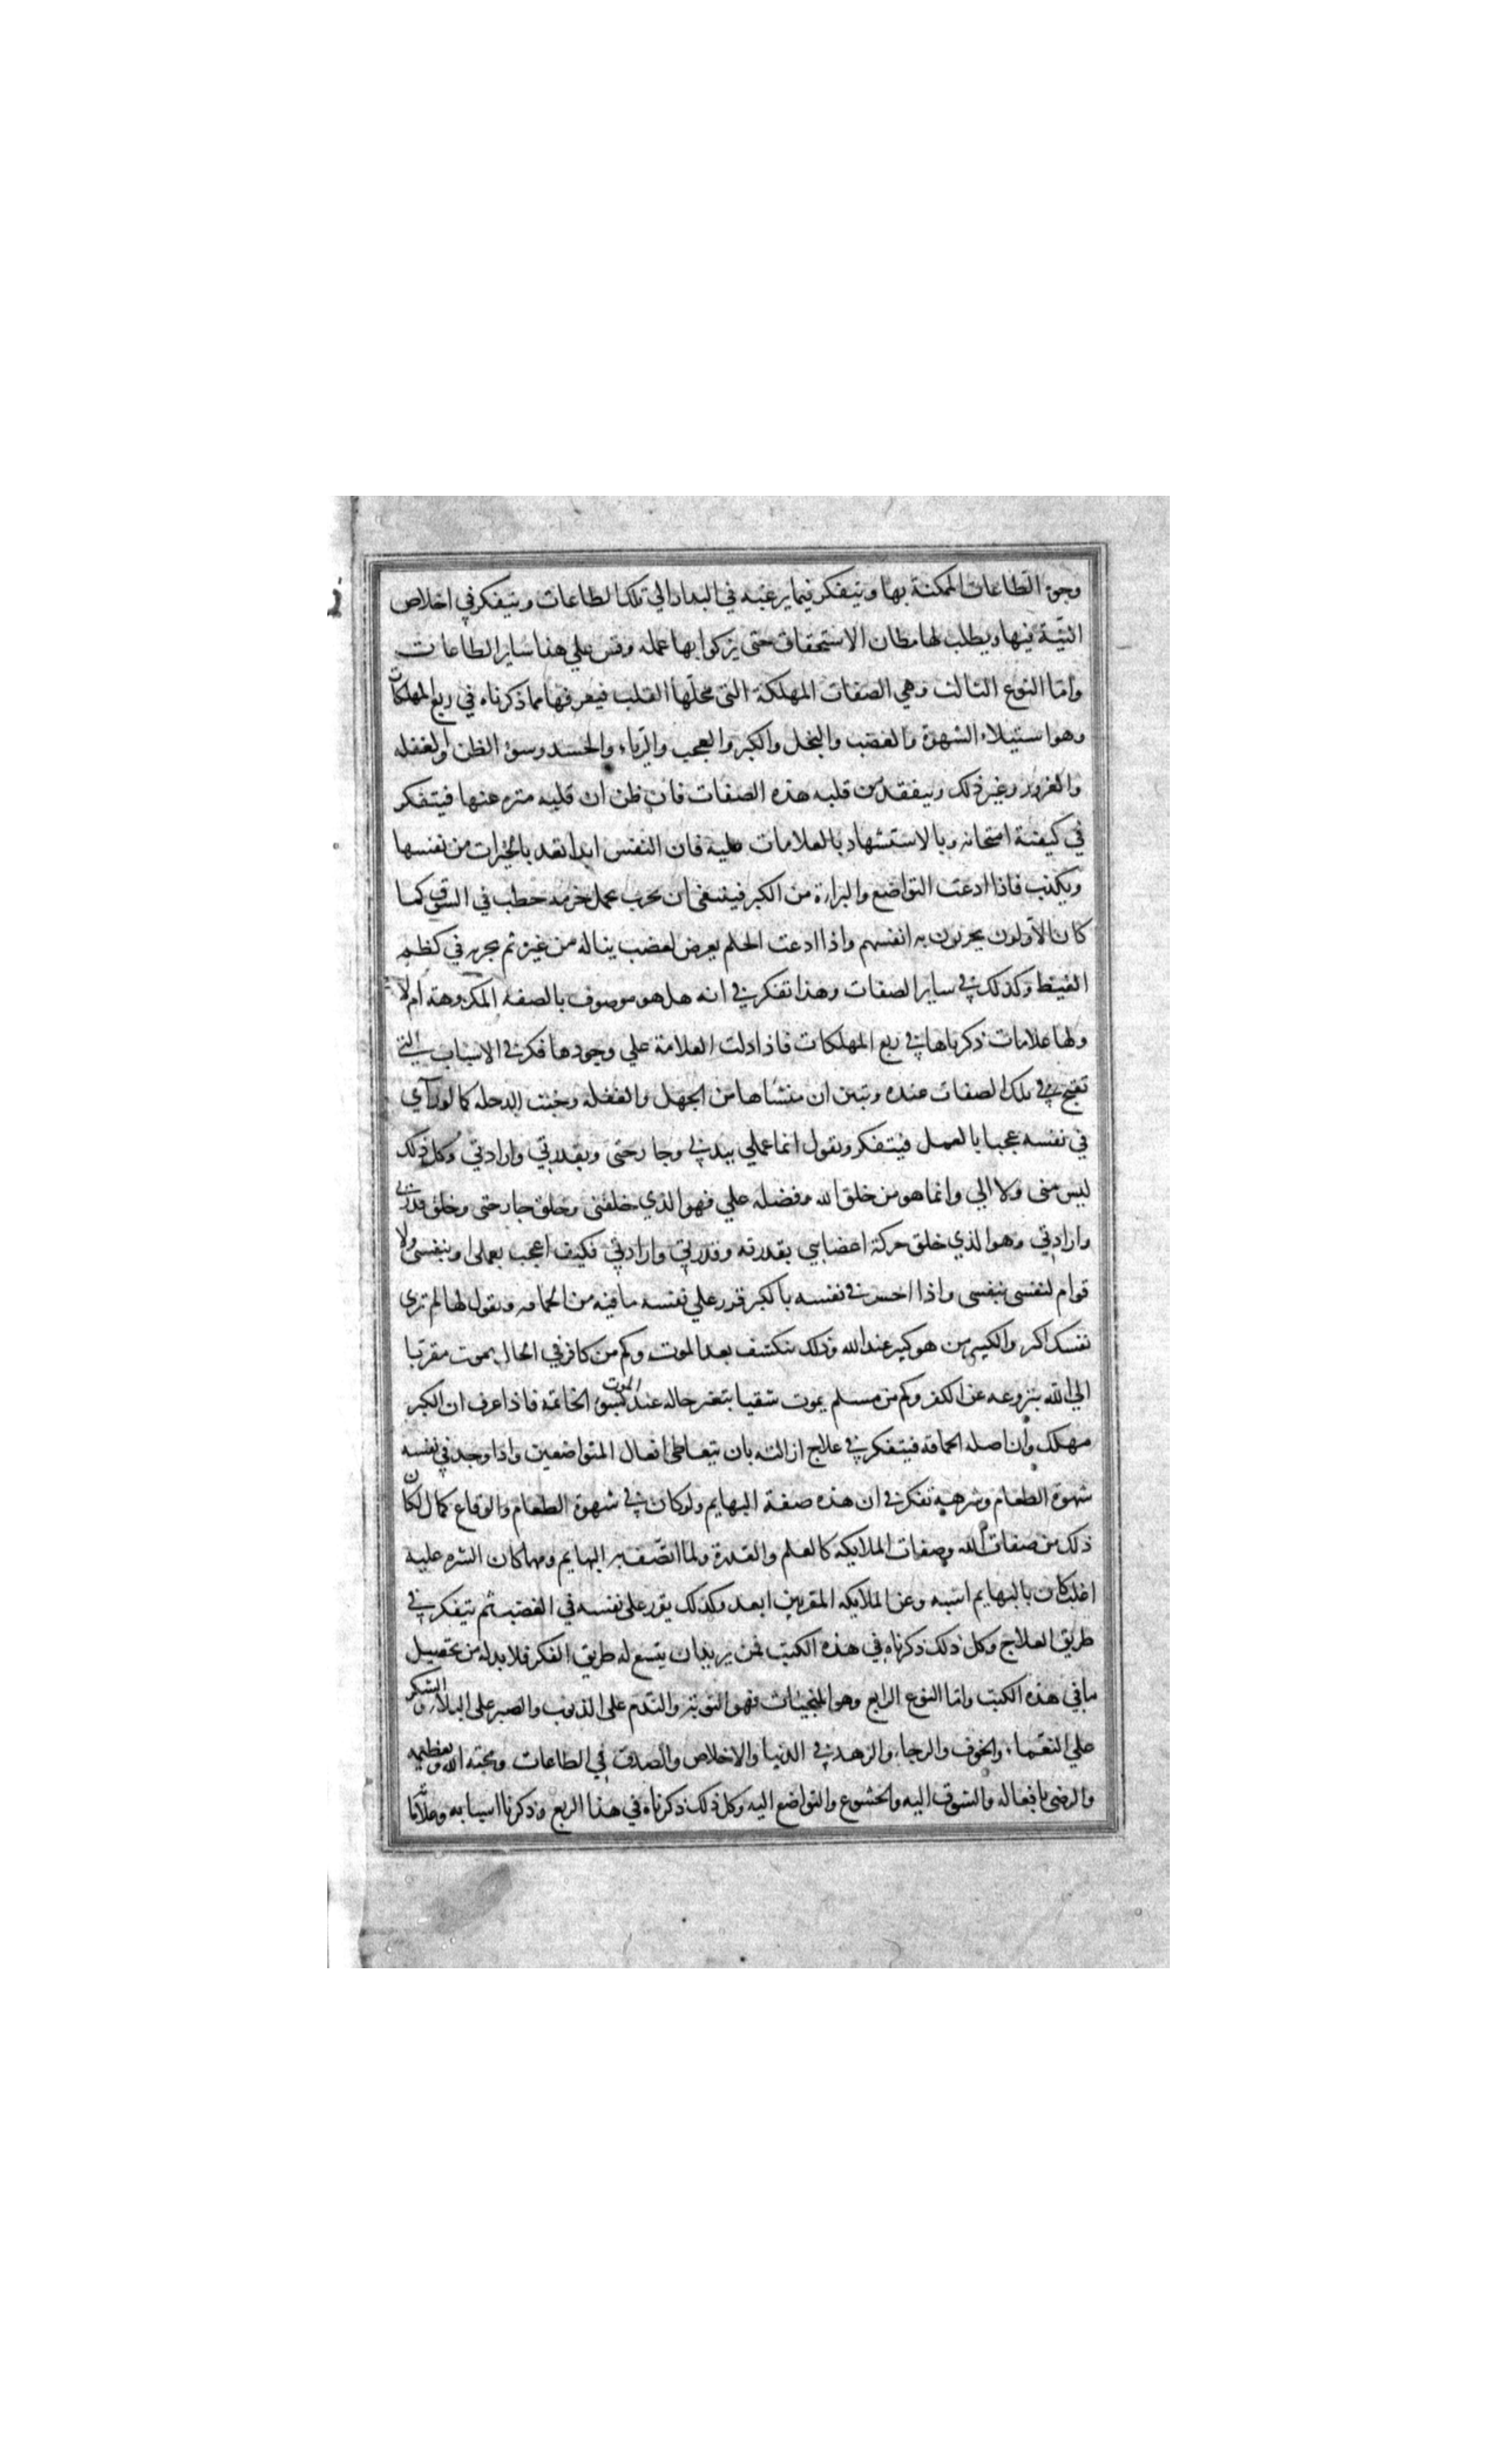 وجوه الطاعات الممكنة بها ويتفكر فيما يرغبه في البدار الي تلك الطاعات ويتفكر في اخلاص
النيّة فيها ويطلب لها مظان الاستحقاق حتى يزكوا بها عمله وقس علي هذا ساير الطاعات
وامّا النوع الثالث وهي الصفات المهلكة التى محلّها القلب فيعرفها مما ذكرناه في ربع المهلكات
وهو استيلاء الشهوة والغضب والبخل والكبر والعجب والرّياء والحسد وسوء الظن والغفله
والغرور وغير ذلك ويتفقد من قلبه هذه الصفات فان ظن ان قلبه منزه عنها فيتفكر
في كيفية امتحانه وبالاستشهاد بالعلامات عليه فان النفس ابدا تعد بالخيرات من نفسها
ويكذب فاذا ادعت التواضع والبراءة من الكبر فينبغى ان يجرب بحمل حزمة حطب في السّوق كما
كان الاولون يجربون به انفسهم واذا ادعت الحلم يعرض لغضب يناله من غيره ثم يجربه في كظم
الغيظ وكذلك في ساير الصفات وهذا تفكر في انه هل هو موصوف بالصفه المكروهة ام لا
ولها علامات ذكرناها في ربع المهلكات فاذا دلت العلامة علي وجودها فكر في الاسباب التي
تقبح تلك الصفات عنده وتبين ان منشاها من الجهل والغفلة وخبث الدخله كما لو رآي
في نفسه عجبا بالعمل فيتفكر ويقول انما عملي ببدني وجارحتى وبقدرتي وارادتي وكل ذلك
ليس منى ولا الي وانما هو من خلق الله وفضله علي فهو الذي خلقنى وخلق جارحتى وخلق قدرتي
وارادتي وهو الذي خلق حركة اعضايي بقدرته وقدرتي وارادتي فكيف اعجب بعملى او بنفسى ولا
قوام لنفسى بنفسى واذا احس في نفسه بالكبر قرر علي نفسه ما فيه من الحماقه ويقول لها لم تري
نفسك اكبر والكبير من هو كبير عند الله وذلك ينكشف بعد الموت وكم من كافر في الحال يموت مقربا
الي الله بنزوعه عن الكفر وكم من مسلم يموت شقيا بتغير حاله عند الموت بسوء الخاتمة فاذا عرف ان الكبر
مهلك وان اصله الحماقه فيتفكر في علاج ازالته بان يتعاطى افعال المتواضعين واذا وجد في نفسه
شهوة الطعام وشرهه تفكر في ان هذه صفة البهايم ولو كان في شهوة الطعام والوقاع كمال لكان
ذلك من صفات الله وصفات الملايكه كالعلم والقدرة ولما اتّصف به البهايم ومهما كان الشره عليه
اغلب كان بالبهايم اشبه وعن الملايكه المقربين ابعد وكذلك يقرر على نفسه في الغضب ثم يتفكر في
طريق العلاج وكل ذلك ذكرناه في هذه الكتب فمن يريد ان يتسع له طريق الفكر فلا بد له من تحصيل
ما في هذه الكتب وامّا النوع الرابع وهو المنجيات فهو التوبة والنّدم على الذنوب والصبر على البلاء والشكر
علي النعماء والخوف والرجاء والزهد في الدنيا والاخلاص والصدق في الطاعات ومحبة الله وتعظيمه
والرضى بافعاله والشوق اليه والخشوع والتواضع اليه وكل ذلك ذكرناه في هذا الربع وذكرنا اسبابه وعلاما